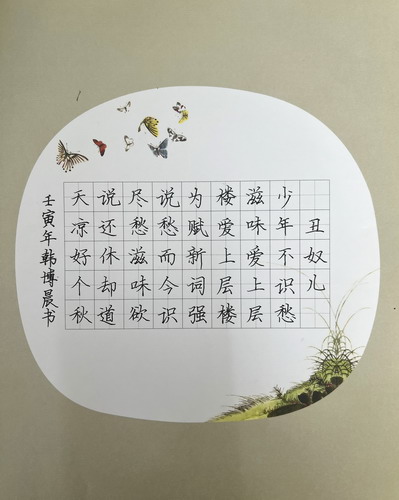 丑奴儿
少年不识愁
滋味爱上层
楼爱上层楼
为赋新词强
说愁而今识
尽愁滋味欲
说还休却道
天凉好个秋
壬寅年韩博晨书